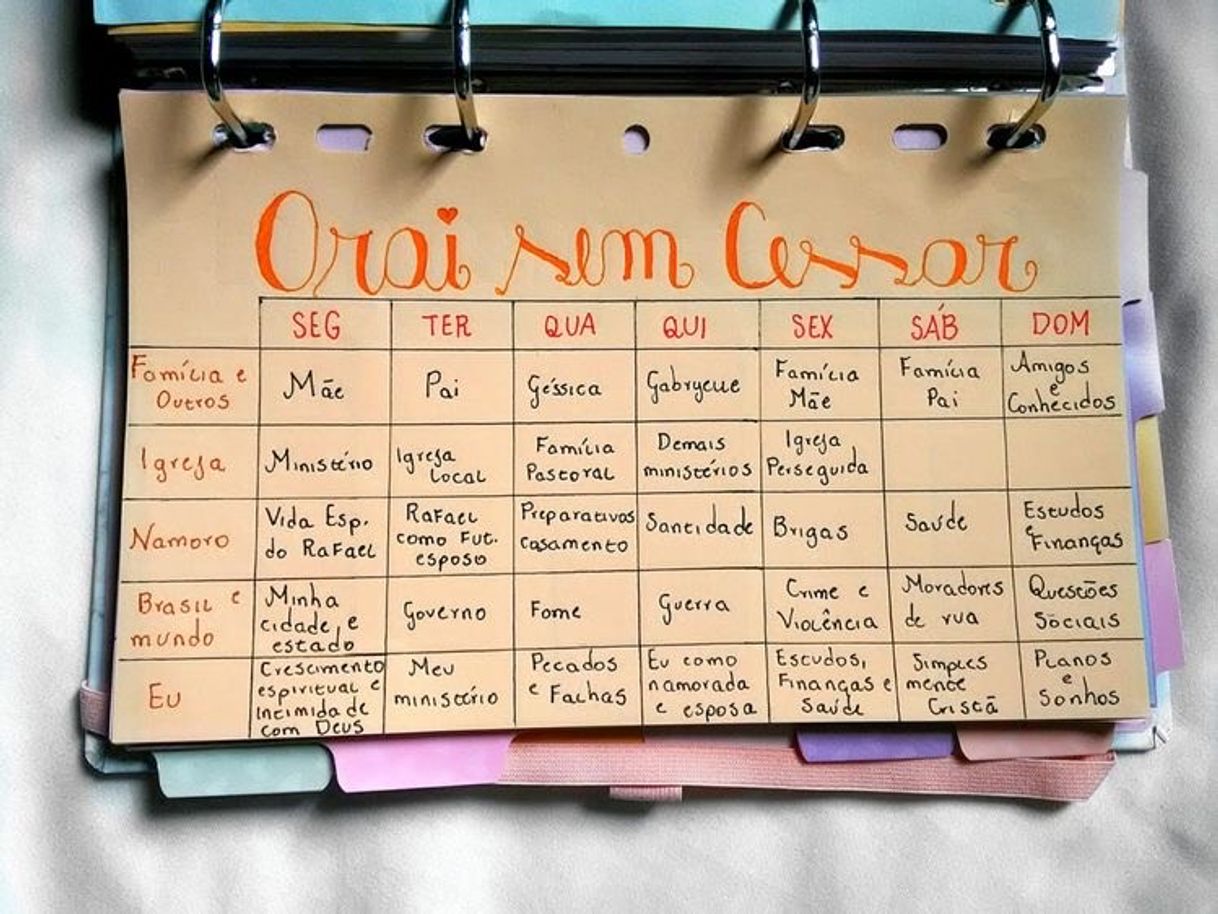 Orai sem Cessar
SEG TER QUA QUI SEX SÁB DOM
Família e Outros Mãe Pai Géssica Gabryelle Família Mãe Família Pai Amigos e Conhecidos
Igreja Ministério Igreja Local Família Pastoral Demais ministérios Igreja Perseguida
Namoro Vida Esp. do Rafael Rafael como Fut. esposo Preparativos casamento Santidade Brigas Saúde Estudos e Finanças
Brasil e mundo Minha cidade e estado Governo Fome Guerra Crime e Violência Moradores de rua Questões Sociais
Eu Crescimento espiritual e Intimidade com Deus Meu ministério Pecados e Falhas Eu como namorada e esposa Estudos, Finanças e Saúde Simples mente Cristã Planos e Sonhos